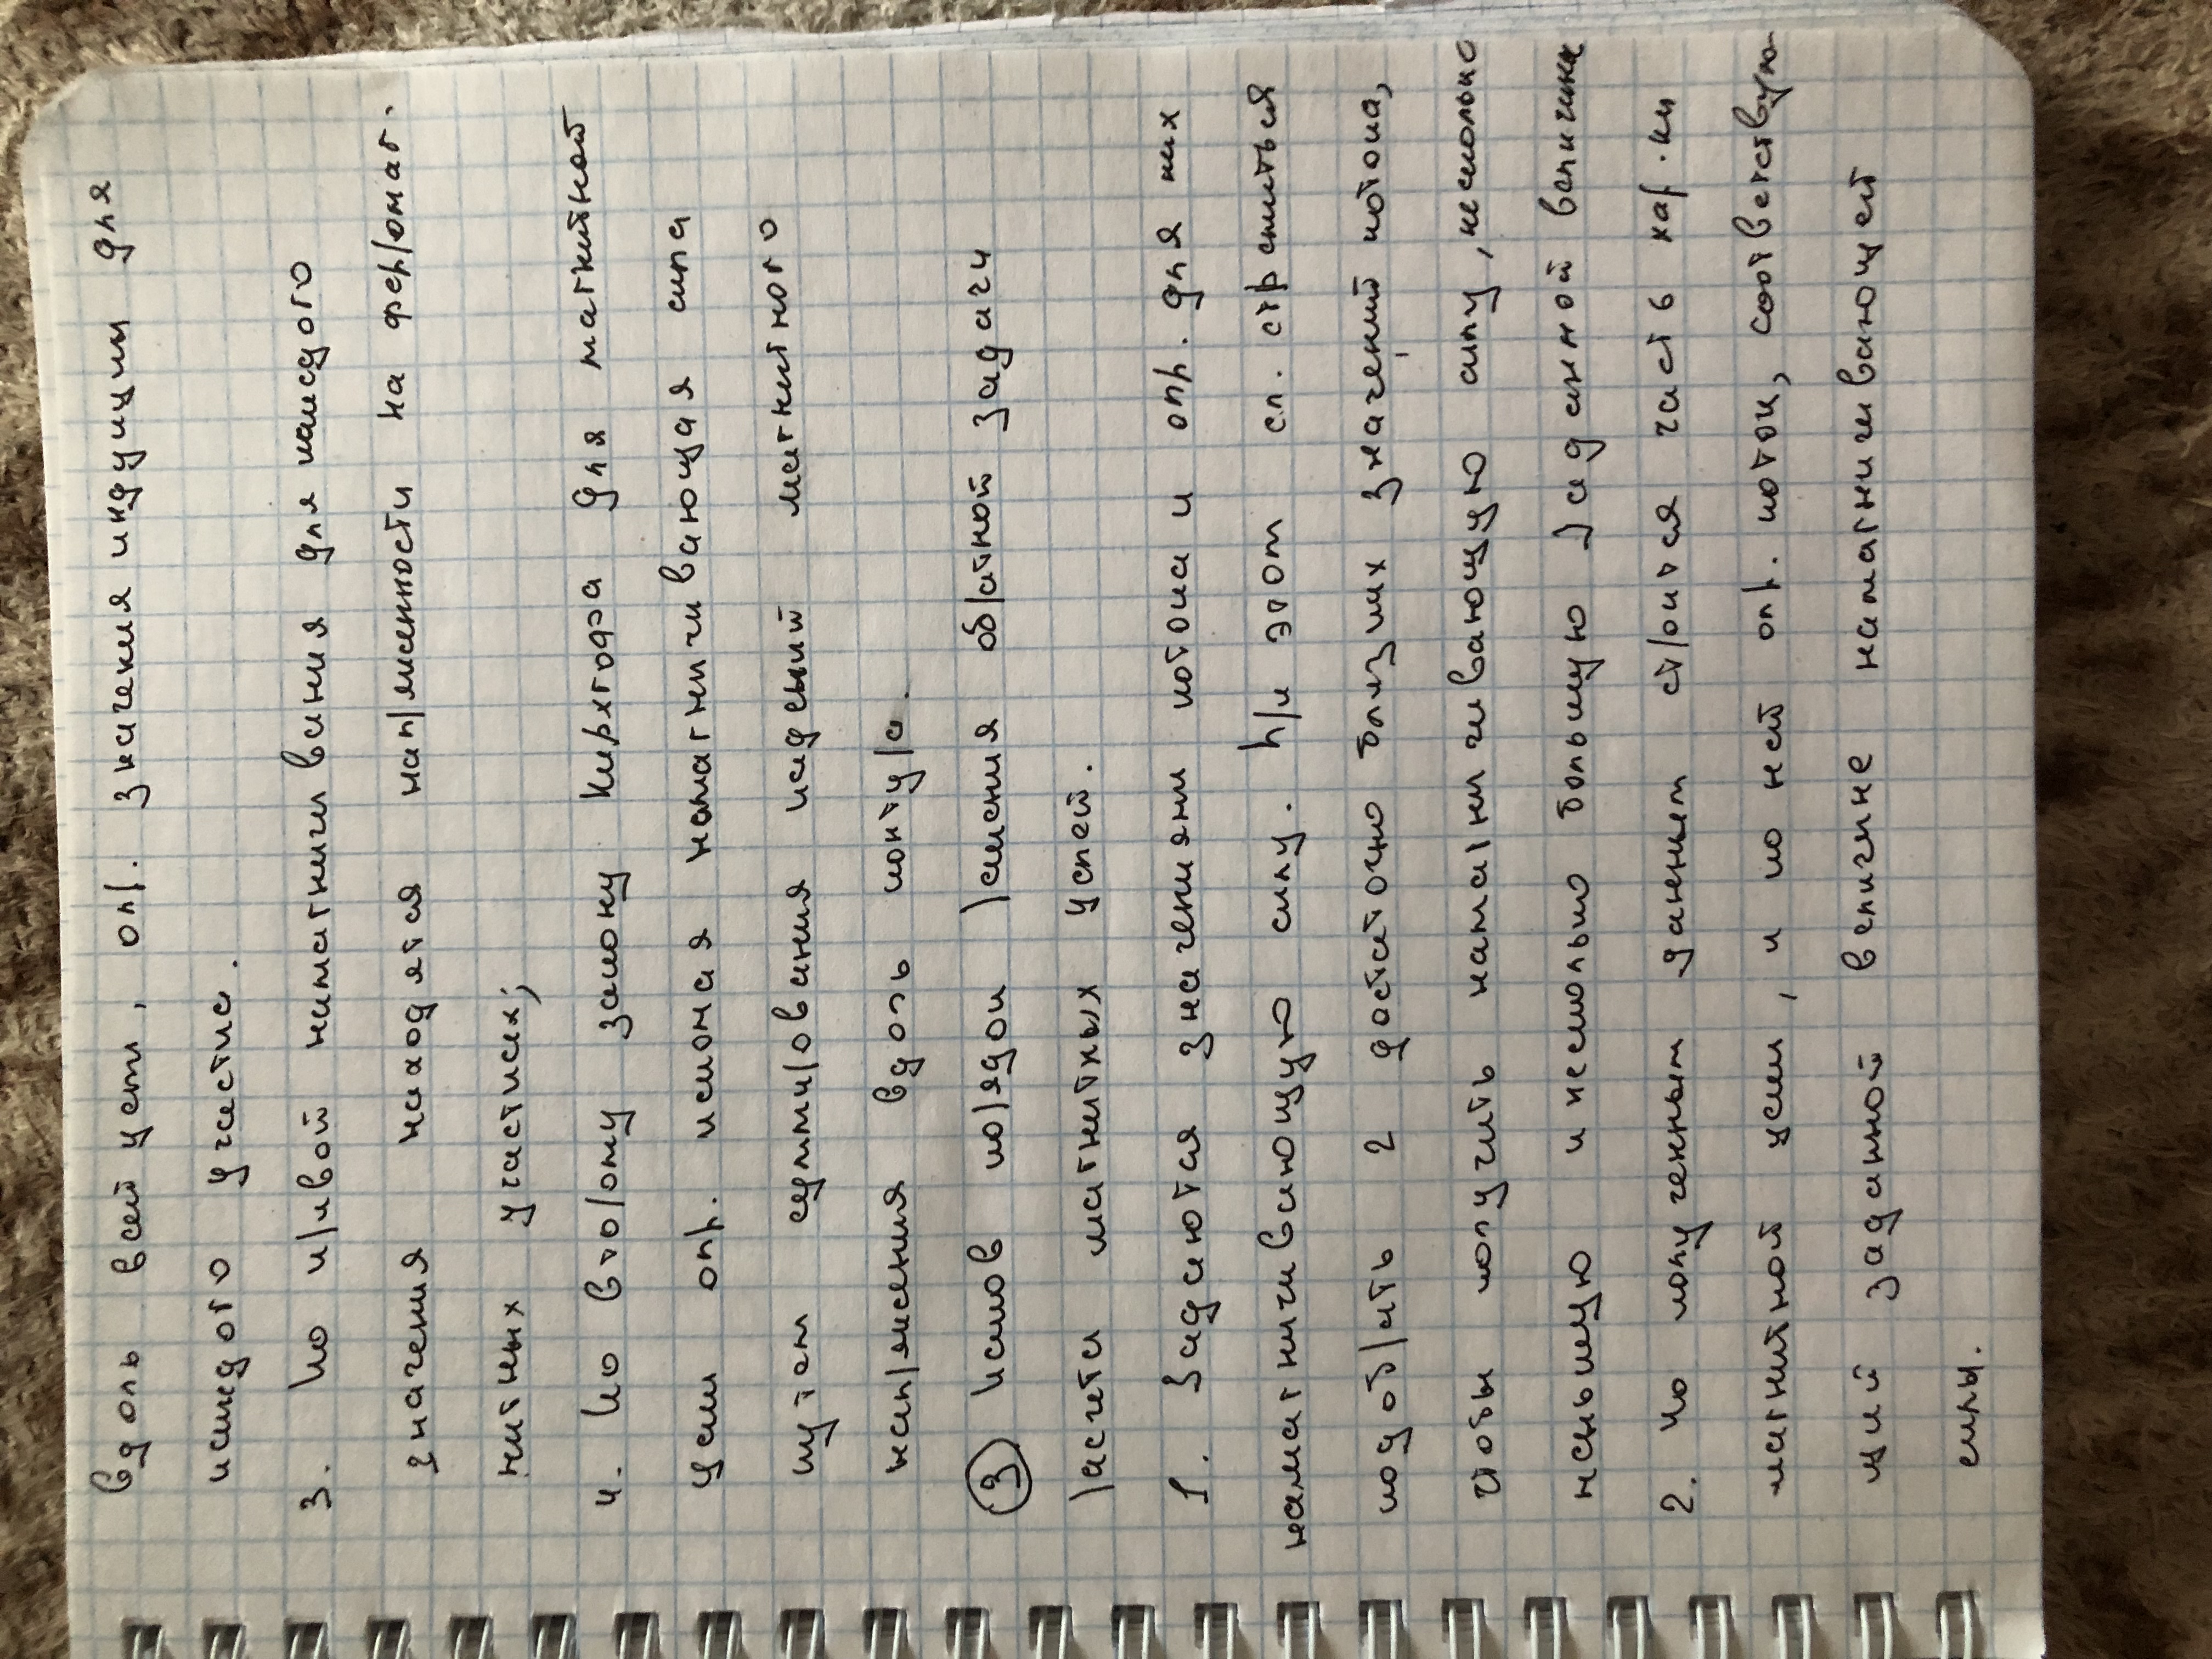 вдоль всей цепи, опр. значения индукции для
каждого участка.
3. По кривой намагничивания для каждого
значения находятся напряженности на ферромаг.
нитных участках;
4. По второму закону Кирхгофа для магнитной
цепи опр. искомая намагничивающая сила
путем суммирования падений магнитного
напряжения вдоль контура.
③ Каков порядок решения обратной задачи
расчета магнитных цепей.
1. Задаются значениями потока и опр. для них
намагничивающую силу. При этом сл. стремиться
подобрать 2 достаточно близких значений потока,
чтобы получить намагничивающую силу, несколько
меньшую и несколько большую заданной величины
2. По полученным данным строится часть хар.ки
магнитной цепи, и по ней опр. поток, соответствую-
щий заданной величине намагничивающей
силы.